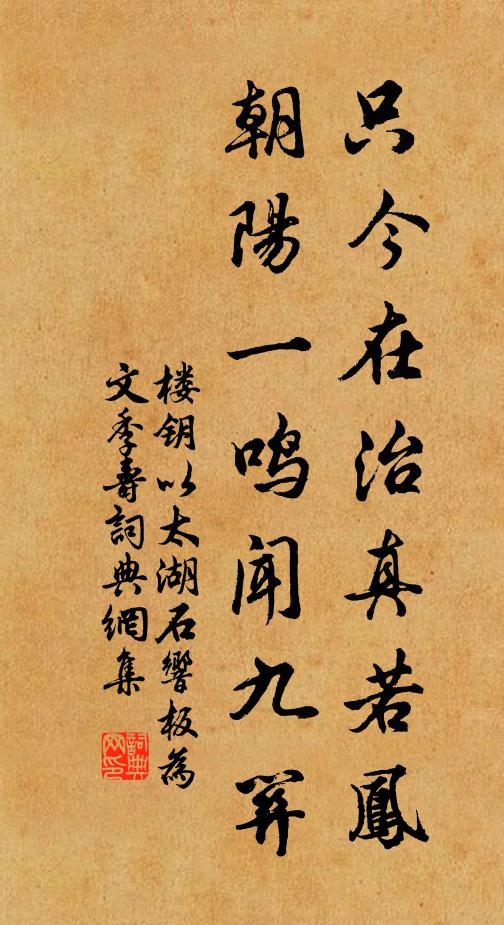 只今在治真若鳳
朝陽一鳴聞九關
楼钥以太湖石響板為
文季壽詞典網集
詞典
网印